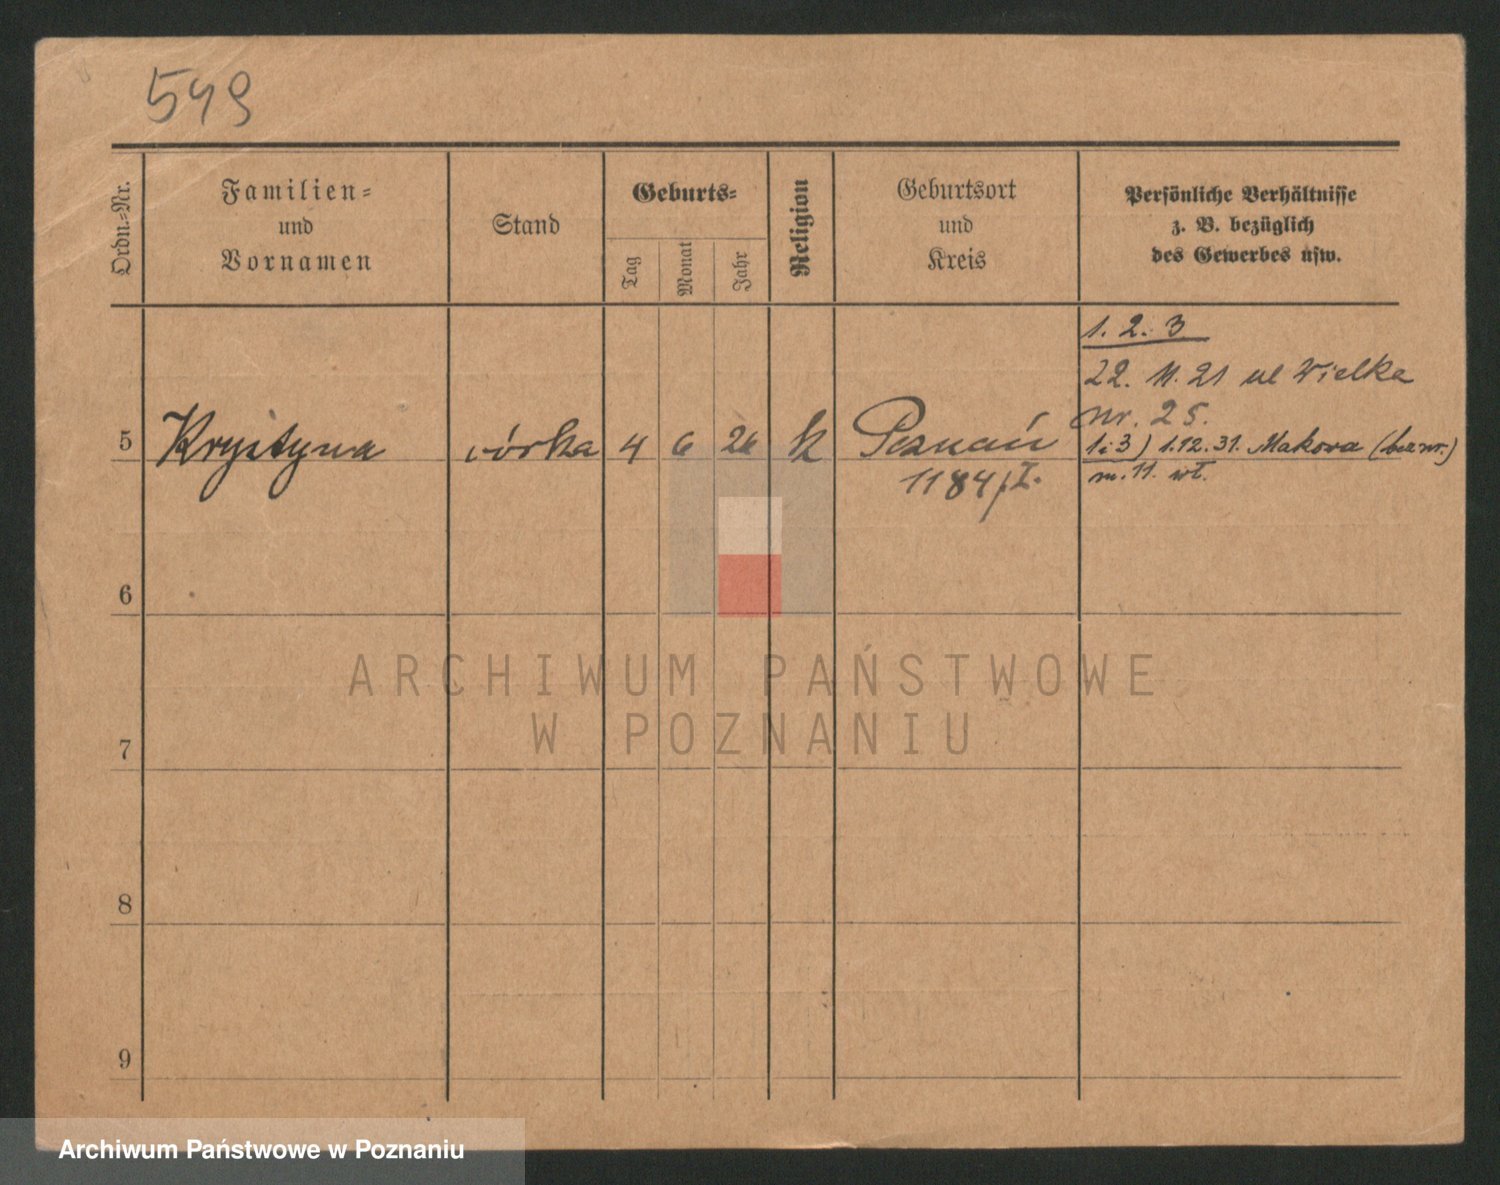 549
Ordn.=Nr.
Familien=
und
Vornamen
Stand
Geburts=
Tag
Monat
Jahr
Religion
Geburtsort
und
Kreis
Persönliche Verhältnisse
z. B. bezüglich
des Gewerbes usw.
1. 2. 3
22. 11. 21 ul Wielka
nr. 25.
5 Krystyna córka 4 6 26 k Poznań 1 i 3) 1.12.31. Makowa (bez nr.)
1184/I. m. 11. wł.
6
7
8
9
ARCHIWUM PAŃSTWOWE
W POZNANIU
Archiwum Państwowe w Poznaniu